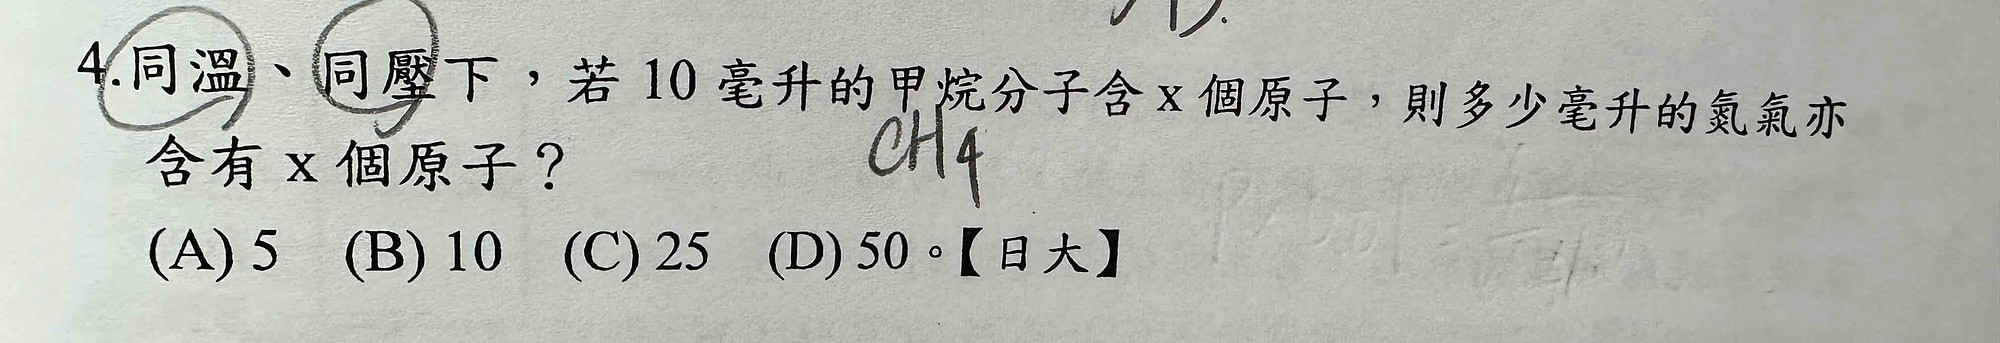 4.同溫、同壓下,若 10 毫升的甲烷分子含 x 個原子,則多少毫升的氮氣亦
CH4
含有 x 個原子?
(A) 5 (B) 10 (C) 25 (D) 50。【日大】